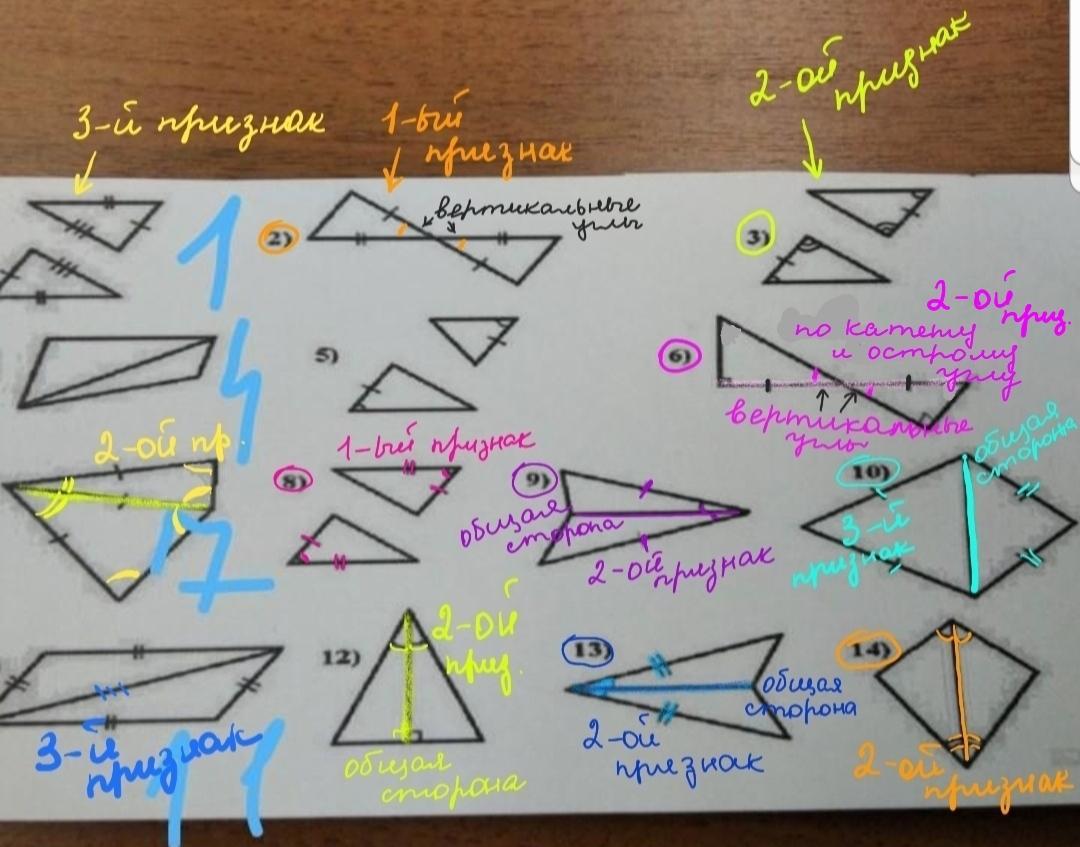 2-ой
признак
3-й признак
1-ый
признак
1
2)
вертикальные
углы
3)
4
5)
6)
2-ой
приз.
по катету
и острому
углу
вертикальные
углы
7
2-ой пр.
8)
1-ый признак
9)
общая
сторона
2-ой признак
10)
общая
сторона
3-й
признак
11
3-й
признак
12)
2-ой
приз.
общая
сторона
13)
общая
сторона
2-ой
признак
14)
2-ой
признак